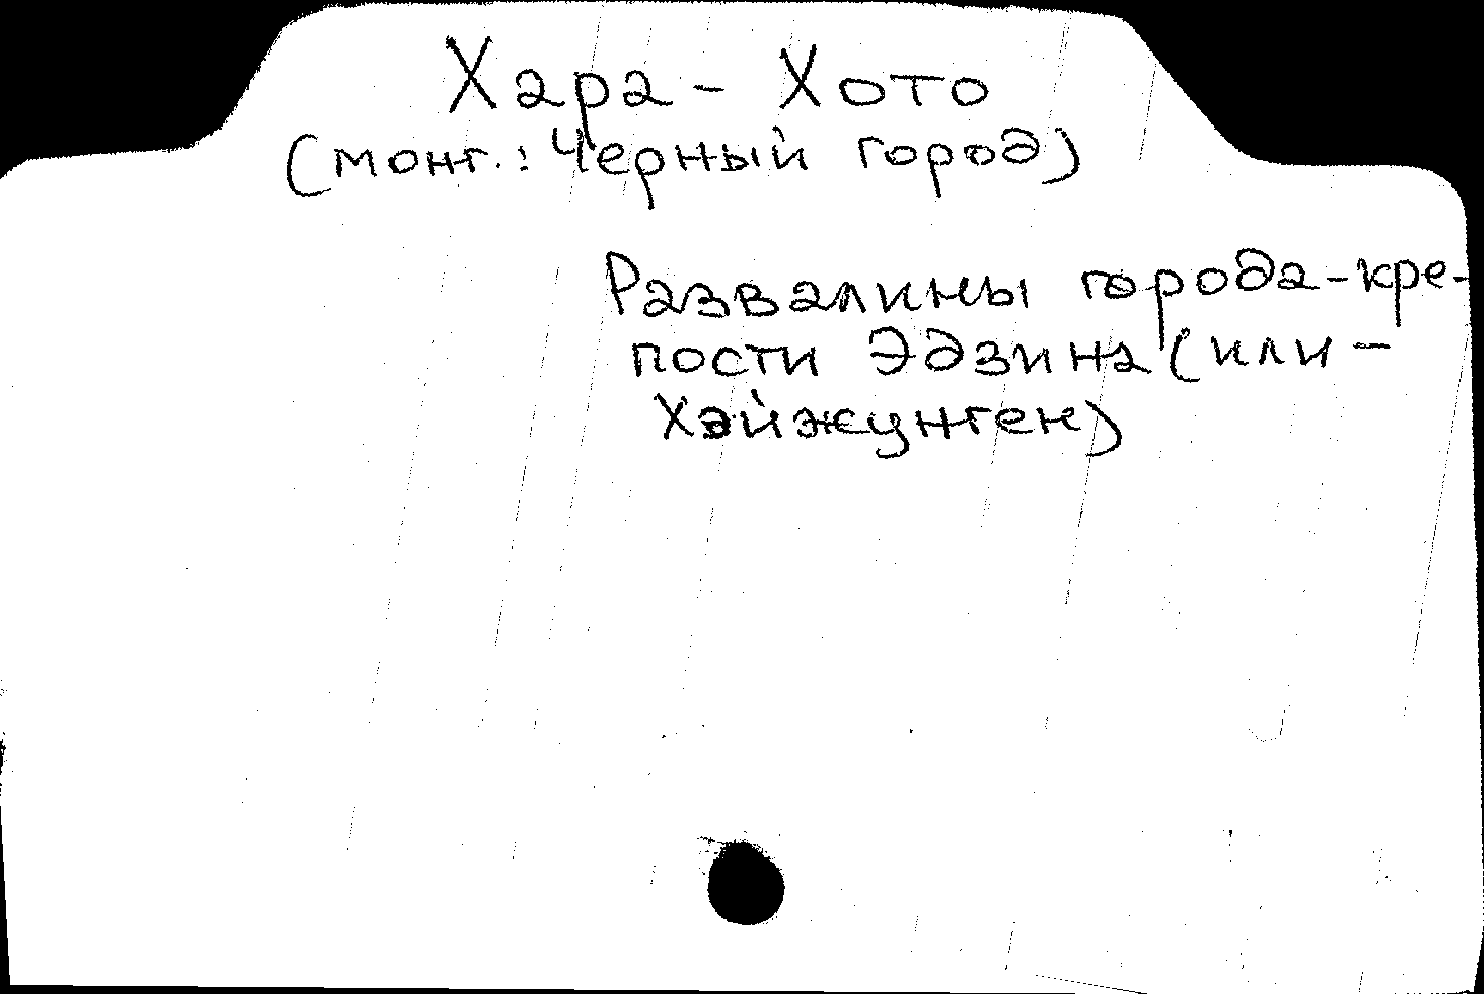 Хара - Хото
(монг.: Черный город)
Развалины города-кре-
пости Эдзина (или -
Хэйжунген)